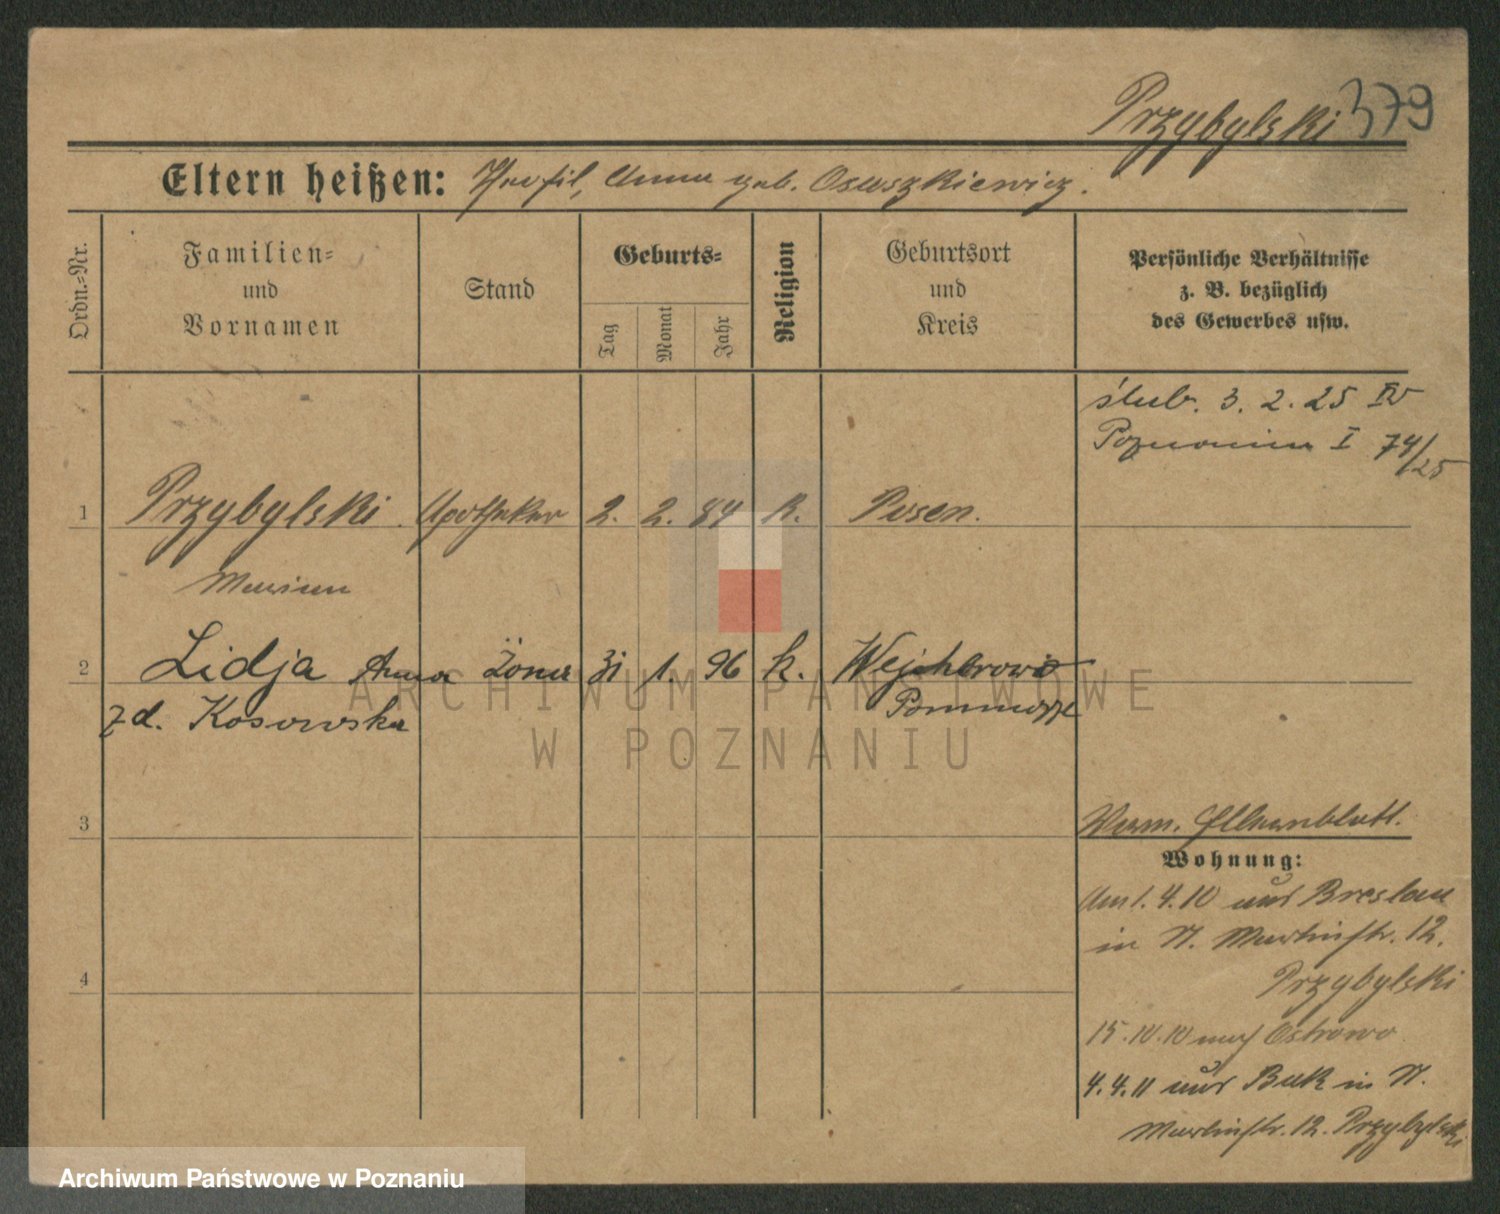 Przybylski 379
Eltern heißen: Theofil, Anna geb. Osuszkiewicz.
Ordn.=Nr.
Familien=
und
Vornamen
Stand
Geburts=
Tag
Monat
Jahr
Religion
Geburtsort
und
Kreis
Persönliche Verhältnisse
z. B. bezüglich
des Gewerbes usw.
ślub. 3. 2. 25 w
Poznaniu I 74/25
1 Przybylski. Apotheker 2. 2. 84 K. Posen.
Marian
2 Lidja Anna Żona 31 1. 96 k. Wejcherowo
zd. Kosowska Pommorze
3
Verm. Elternblatt.
Wohnung:
Am 1.4.10 aus Breslau
in St. Martinstr. 12.
Przybylski
4
15.10.10 nach Ostrowo
4.4.11 aus Buk in St.
Martinstr. 12. Przybylski
ARCHIWUM PAŃSTWOWE
W POZNANIU
Archiwum Państwowe w Poznaniu